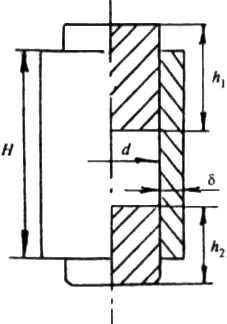 h₁
H
d
δ
h₂